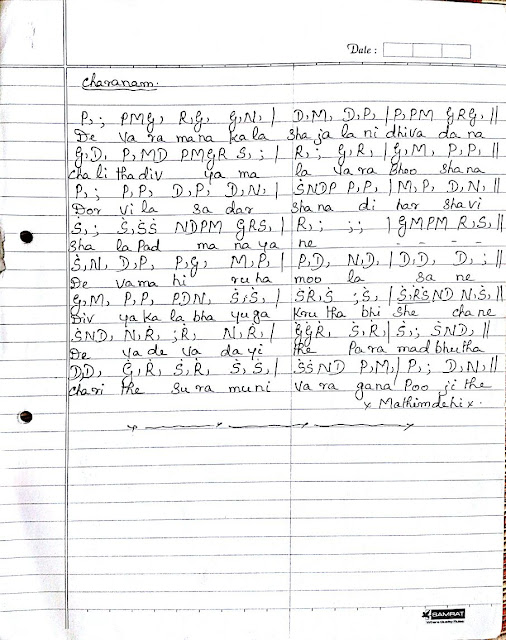 Date :
Charanam.
P, ; PMG, R,G, G,N, | D,M, D,P, | P,PM GRG, ||
De va ra mana ka la sha ja la ni dhiva da na
G,D, P,MD PMGR S, ; | R, ; G,R, | G,M, P,P, ||
cha li tha div ya ma la va ra bhoo sha na
P, ; P,P, D,P, D,N, | ṠNDP P,P, | M,P, D,N, ||
Dor vi la sa dar sha na di har sha vi
Ṡ, ; Ṡ,ṠṠ NDPM GRS, | R, ; ; ; | GMPM R,S, ||
sha la Pad ma na ya ne - - - -
Ṡ,N, D,P, P,G, M,P, | P,D, N,D, | D,D, D, ; ||
De vama hi ru ha moo la sa ne
G,M, P,P, PDN, Ṡ,Ṡ, | ṠṘ,Ṡ ;Ṡ, | Ṡ,ṘṠND N,Ṡ, ||
Div ya ka la bha yuga kru tha bhi she cha ne
ṠND, N,Ṙ, ;Ṙ, N,Ṙ, | ĠĠṘ, Ṡ,Ṙ | Ṡ, ; ṠND, ||
De va de va da yi the Para mad bhutha
D,D, Ġ,Ṙ, Ṡ,Ṙ, Ṡ,Ṡ, | ṠṠND P,M, | P, ; D,N, ||
chari the su ra muni va ra gana Poo ji the
x Mathimdehi x
SAMRAT